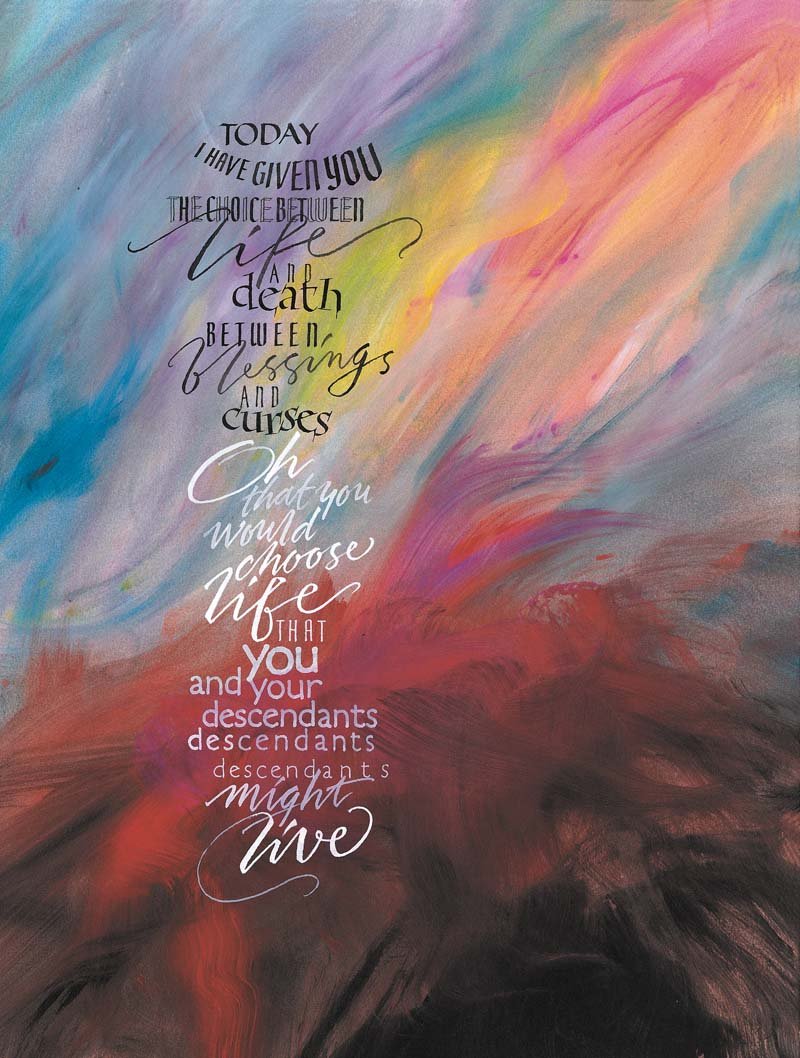 TODAY
I HAVE GIVEN YOU
THE CHOICE BETWEEN
life
AND
death
BETWEEN
blessings
AND
curses
Oh
that you
would
choose
life
THAT
you
and your
descendants
descendants
descendants
might
live